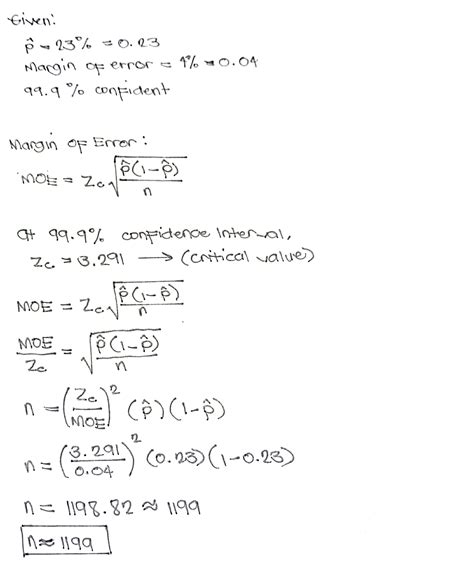 Given:
p̂ = 23% = 0.23
Margin of error = 4% = 0.04
99.9% confident
Margin of Error:
MOE = Zc √(p̂(1-p̂)/n)
At 99.9% confidence Interval,
Zc = 3.291 → (critical value)
MOE = Zc √(p̂(1-p̂)/n)
MOE/Zc = √(p̂(1-p̂)/n)
n = (Zc/MOE)² (p̂)(1-p̂)
n = (3.291/0.04)² (0.23)(1-0.23)
n = 1198.82 ≈ 1199
n ≈ 1199